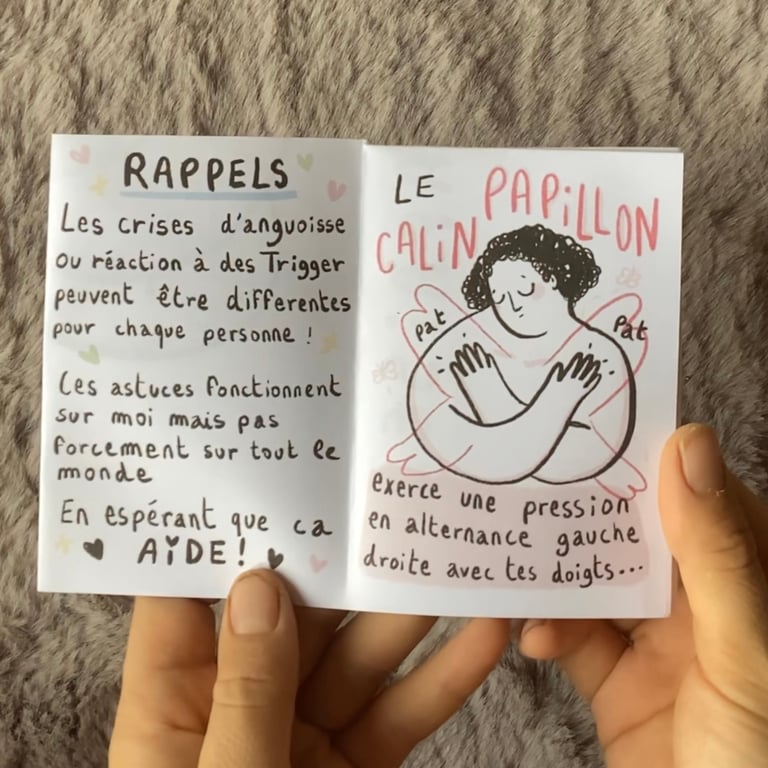 RAPPELS
Les crises d'anguoisse
ou réaction à des Trigger
peuvent être differentes
pour chaque personne !
Ces astuces fonctionnent
sur moi mais pas
forcement sur tout le
monde
En espérant que ca
AiDE!
LE PAPiLLON
CALiN
pat
Pat
exerce une pression
en alternance gauche
droite avec tes doigts...